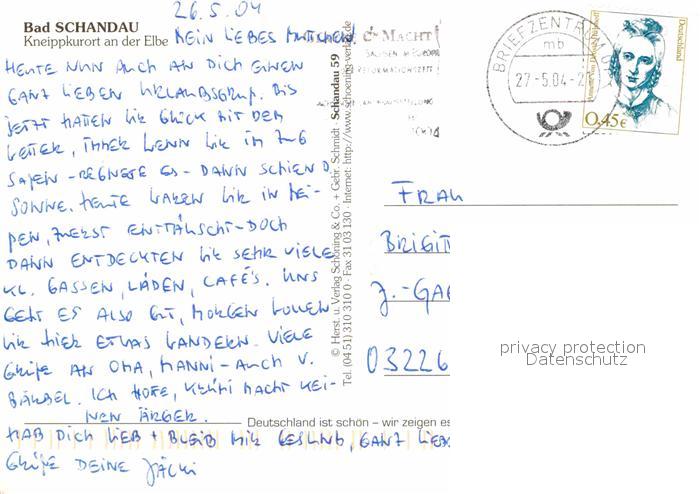 26.5.04
Bad SCHANDAU
Kneippkurort an der Elbe
MEIN LIEBES MUTTCHEN!
HEUTE NUN AUCH AN DICH EINEN
GANZ LIEBEN URLAUBSGRUß. BIS
JETZT HATTEN WIR GLÜCK MIT DEM
WETTER, IMMER WENN WIR IM ZUG
SAßEN - REGNETE ES - DANN SCHIEN D.
SONNE. HEUTE WAREN WIR IN MEI-
ßEN, ZUERST ENTTÄUSCHT - DOCH
DANN ENTDECKTEN WIR SEHR VIELE
KL. GASSEN, LÄDEN, CAFÉ'S. UNS
GEHT ES ALSO GUT, MORGEN WOLLEN
WIR HIER ETWAS WANDERN. VIELE
GRÜßE AN OMA, MANNI - AUCH V.
BÄRBEL. ICH HOFFE, MACHT KEI-
NEN ÄRGER.
HAB DICH LIEB + BLEIB MIR GESUND, GANZ LIEBE
GRÜßE DEINE JACKI
Deutschland ist schön – wir zeigen es
© Herst. u. Verlag Schöning & Co. + Gebr. Schmidt · Schandau 59
Tel. (0451) 310 310 0 · Fax 31 03 130 · Internet: http://www.schoening-verlag.de
MACHT
SACHSEN IN EUROPA
REFORMATIONSZEIT
BRIEFZENTRUM
mb
27-5.04-2
Deutschland
0,45€
FRAU
BRIGIT
J.-GA
03226
privacy protection
Datenschutz